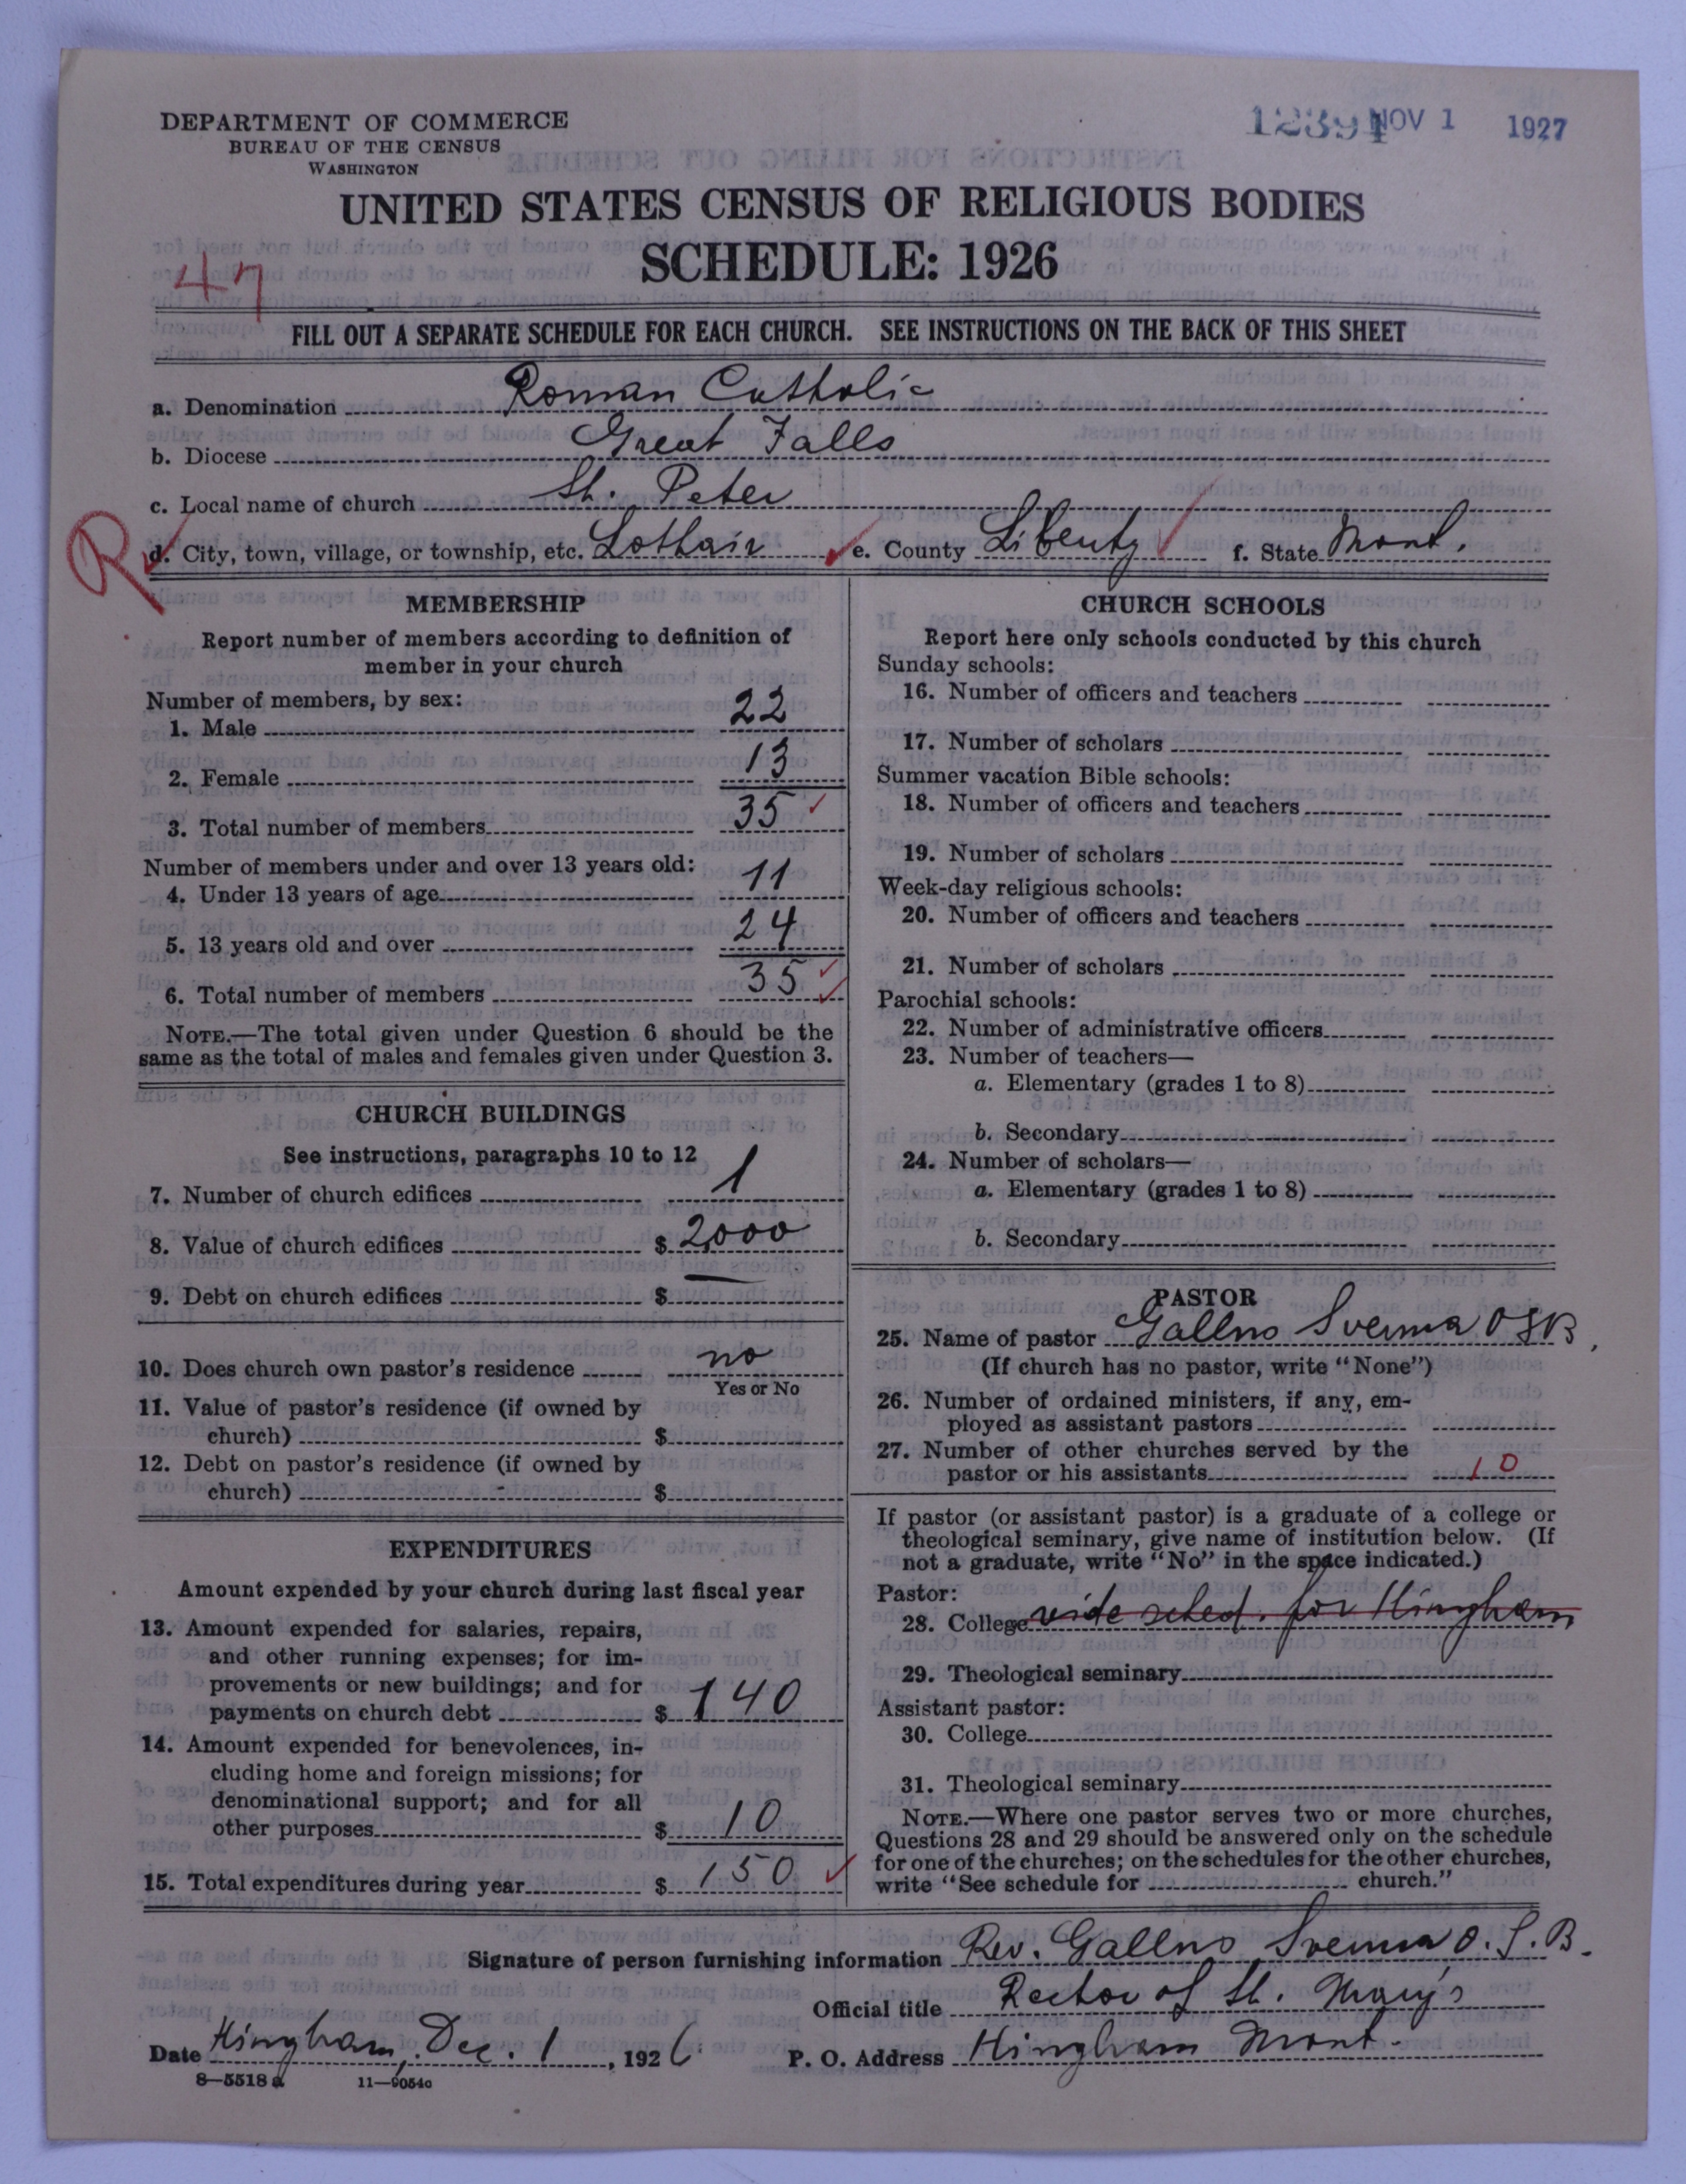 DEPARTMENT OF COMMERCE
BUREAU OF THE CENSUS
WASHINGTON
12391 NOV 1 1927
UNITED STATES CENSUS OF RELIGIOUS BODIES
SCHEDULE: 1926
47
FILL OUT A SEPARATE SCHEDULE FOR EACH CHURCH. SEE INSTRUCTIONS ON THE BACK OF THIS SHEET
a. Denomination Roman Catholic
b. Diocese Great Falls
c. Local name of church St. Peter
R
d. City, town, village, or township, etc. Lothair e. County Liberty f. State Mont.
MEMBERSHIP
Report number of members according to definition of
member in your church
Number of members, by sex:
1. Male 22
2. Female 13
3. Total number of members 35
Number of members under and over 13 years old:
4. Under 13 years of age 11
5. 13 years old and over 24
6. Total number of members 35
NOTE.—The total given under Question 6 should be the
same as the total of males and females given under Question 3.
CHURCH BUILDINGS
See instructions, paragraphs 10 to 12
7. Number of church edifices 1
8. Value of church edifices $ 2000
9. Debt on church edifices $ —
10. Does church own pastor's residence no
Yes or No
11. Value of pastor's residence (if owned by
church) $
12. Debt on pastor's residence (if owned by
church) $
EXPENDITURES
Amount expended by your church during last fiscal year
13. Amount expended for salaries, repairs,
and other running expenses; for im-
provements or new buildings; and for
payments on church debt $ 140
14. Amount expended for benevolences, in-
cluding home and foreign missions; for
denominational support; and for all
other purposes $ 10
15. Total expenditures during year $ 150
CHURCH SCHOOLS
Report here only schools conducted by this church
Sunday schools:
16. Number of officers and teachers
17. Number of scholars
Summer vacation Bible schools:
18. Number of officers and teachers
19. Number of scholars
Week-day religious schools:
20. Number of officers and teachers
21. Number of scholars
Parochial schools:
22. Number of administrative officers
23. Number of teachers—
a. Elementary (grades 1 to 8)
b. Secondary
24. Number of scholars—
a. Elementary (grades 1 to 8)
b. Secondary
PASTOR
25. Name of pastor Gallus OSB.
(If church has no pastor, write "None")
26. Number of ordained ministers, if any, em-
ployed as assistant pastors
27. Number of other churches served by the
pastor or his assistants 10
If pastor (or assistant pastor) is a graduate of a college or
theological seminary, give name of institution below. (If
not a graduate, write "No" in the space indicated.)
Pastor:
28. College vide sched. for Hingham
29. Theological seminary
Assistant pastor:
30. College
31. Theological seminary
NOTE.—Where one pastor serves two or more churches,
Questions 28 and 29 should be answered only on the schedule
for one of the churches; on the schedules for the other churches,
write "See schedule for church."
Signature of person furnishing information Rev. Gallus O.S.B.
Official title Rector of St. Mary's
Date Hingham, Dec. 1, 1926 P. O. Address Hingham Mont.
8—5518a 11—9054a